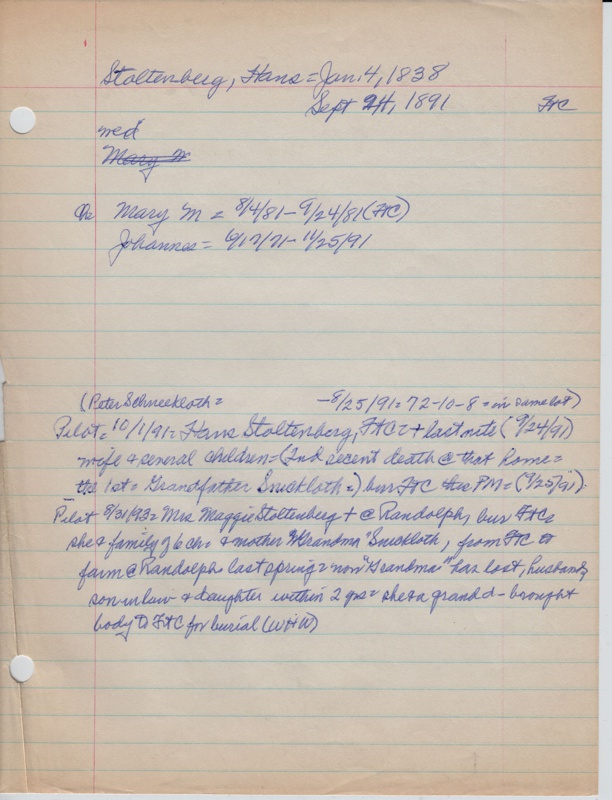 Stoltenberg, Hans = Jan. 4, 1838
Sept 24, 1891 FtC
med
Mary M
Ch Mary M = 8/4/81 - 9/24/81 (FtC)
Johannes = - 11/25/91
(Peter Schneekloth = - 8/25/91 = 72-10-8 = in same lot)
Pilot = 10/1/91 = Hans Stoltenberg, FtC = + last nite (9/24/91)
wife & several children = (2nd recent death @ that home =
the 1st = Grandfather Snickloth =) bur FtC this PM = (9/25/91).
Pilot 8/31/93 = Mrs Maggie Stoltenberg + @ Randolph, bur FtC =
she & family of 6 ch = & mother "Grandma" Snickloth, from FtC to
farm @ Randolph last spring = now "Grandma" has lost, husband,
son in law & daughter within 2 yrs = she & a grand d - brought
body to FtC for burial (WHW)